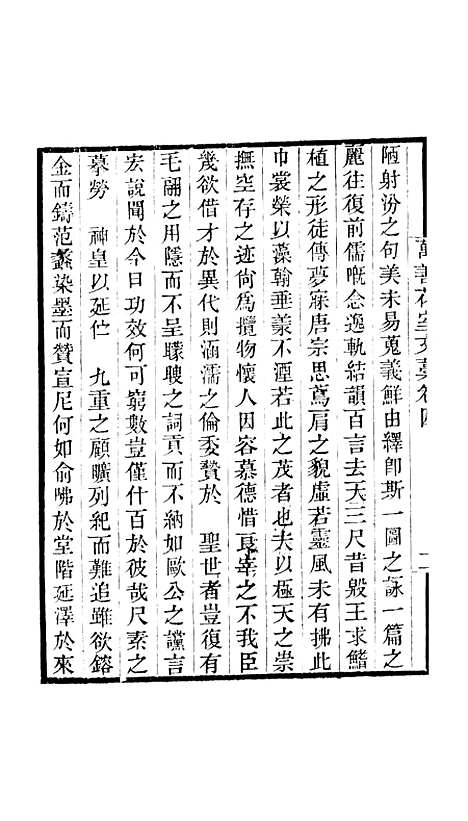 萬善花室文藁卷四 二
陋射汾之句美未易蒐義鮮由繹卽斯一圖之詠一篇之
麗往復前儒嘅念逸軌結韻百言去天三尺昔殷王求鰭
植之形徒傳夢寐唐宗思鳶肩之貌虛若靈風未有拂此
巾裳榮以藻翰垂羕不湮若此之茂者也夫以極天之崇
撫空存之迹尙爲攬物懷人因容慕德惜良宰之不我臣
幾欲借才於異代則涵濡之倫委贄於 聖世者豈復有
毛翮之用隱而不呈矇瞍之詞貢而不納如歐公之讜言
宏說聞於今日功效何可窮數豈僅什百於彼哉尺素之
摹勞 神皇以延伫 九重之顧曠列紀而難追雖欲鎔
金而鑄范蠡染墨而贊宣尼何如俞咈於堂階延澤於來